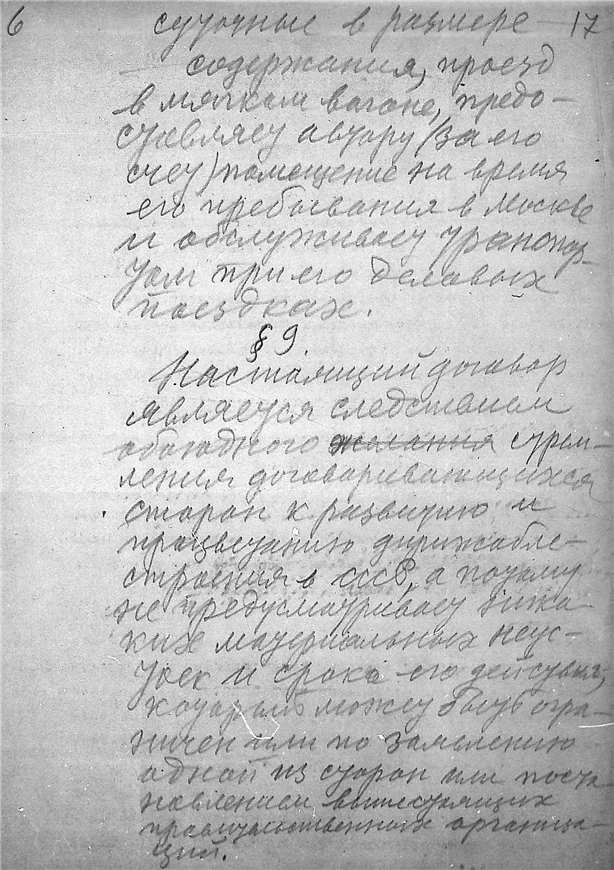 6 суточные в размере — 17
— содержания, проезд
в мягком вагоне, предо-
ставляет автору (за его
счет) помещение на время
его пребывания в Москве
и обслуживает транспор-
том при его деловых
поездках.
§ 9.
Настоящий договор
является следствием
обоюдного желания стрем-
ления договаривающихся
сторон к развитию и
процветанию дирижабле-
строения в СССР, а потому
не предусматривает ника-
ких материальных неус-
тоек и срока его действия,
который может быть огра-
ничен или по заявлению
одной из сторон или поста-
новлением вышестоящих
правительственных организа-
ций.